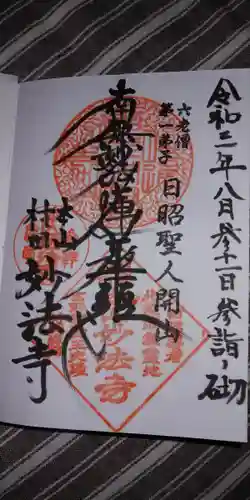 令和二年八月参十一日参詣之砌
六老僧
第一弟子
日昭聖人開山
南無妙法蓮華経
本山
村田妙法寺
妙法寺